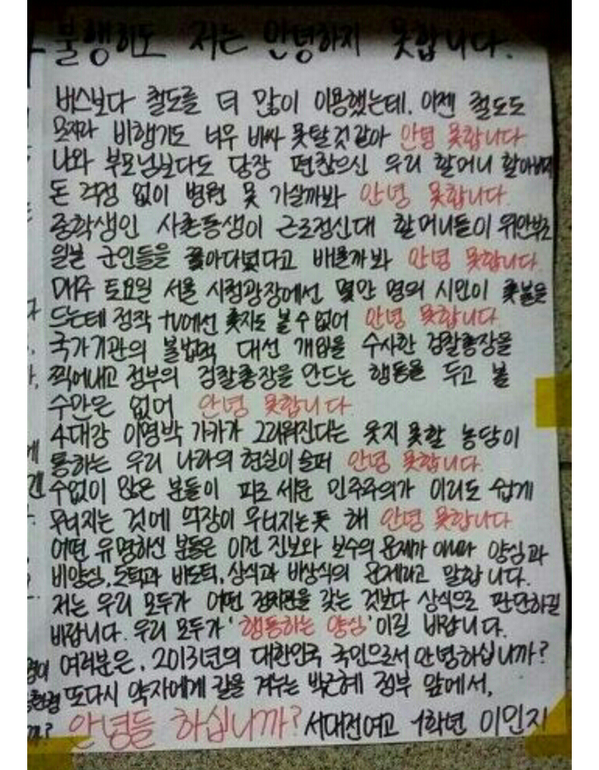 불행히도 저는 안녕하지 못합니다.
버스보다 철도를 더 많이 이용했는데, 이젠 철도도
모자라 비행기도 너무 비싸 못탈것같아 안녕 못합니다
나와 부모님보다도 당장 편찮으신 우리 할머니 할아버지
돈 걱정 없이 병원 못 가실까봐 안녕 못합니다.
중학생인 사촌동생이 근로정신대 할머니들이 위안부로
일본 군인들을 쫓아다녔다고 배울까봐 안녕 못합니다.
매주 토요일 서울 시청광장에선 몇만 명의 시민이 촛불을
드는데 정작 tv에선 촛지도 볼 수 없어 안녕 못합니다
국가기관의 불법적 대선 개입을 수사한 검찰총장을
찍어내고 정부의 검찰총장을 만드는 행동을 두고 볼
수만은 없어 안녕 못합니다.
4대강 이명박 가카가 그리워진다는 웃지 못할 농담이
통하는 우리 나라의 현실이 슬퍼 안녕 못합니다.
수없이 많은 분들이 피로 세운 민주주의가 이리도 쉽게
무너지는 것에 억장이 무너지는듯 해 안녕 못합니다
어떤 유명하신 분들은 이건 진보와 보수의 문제가 아니라 양심과
비양심, 도덕과 비도덕, 상식과 비상식의 문제라고 말합니다.
저는 우리 모두가 어떤 정치관을 갖는 것보다 상식으로 판단하길
바랍니다. 우리 모두가 '행동하는 양심'이길 바랍니다.
여러분은, 2013년의 대한민국 국민으로서 안녕하십니까?
또다시 약자에게 칼을 겨누는 박근혜 정부 앞에서,
안녕들 하십니까? 서대전여고 1학년 이민지